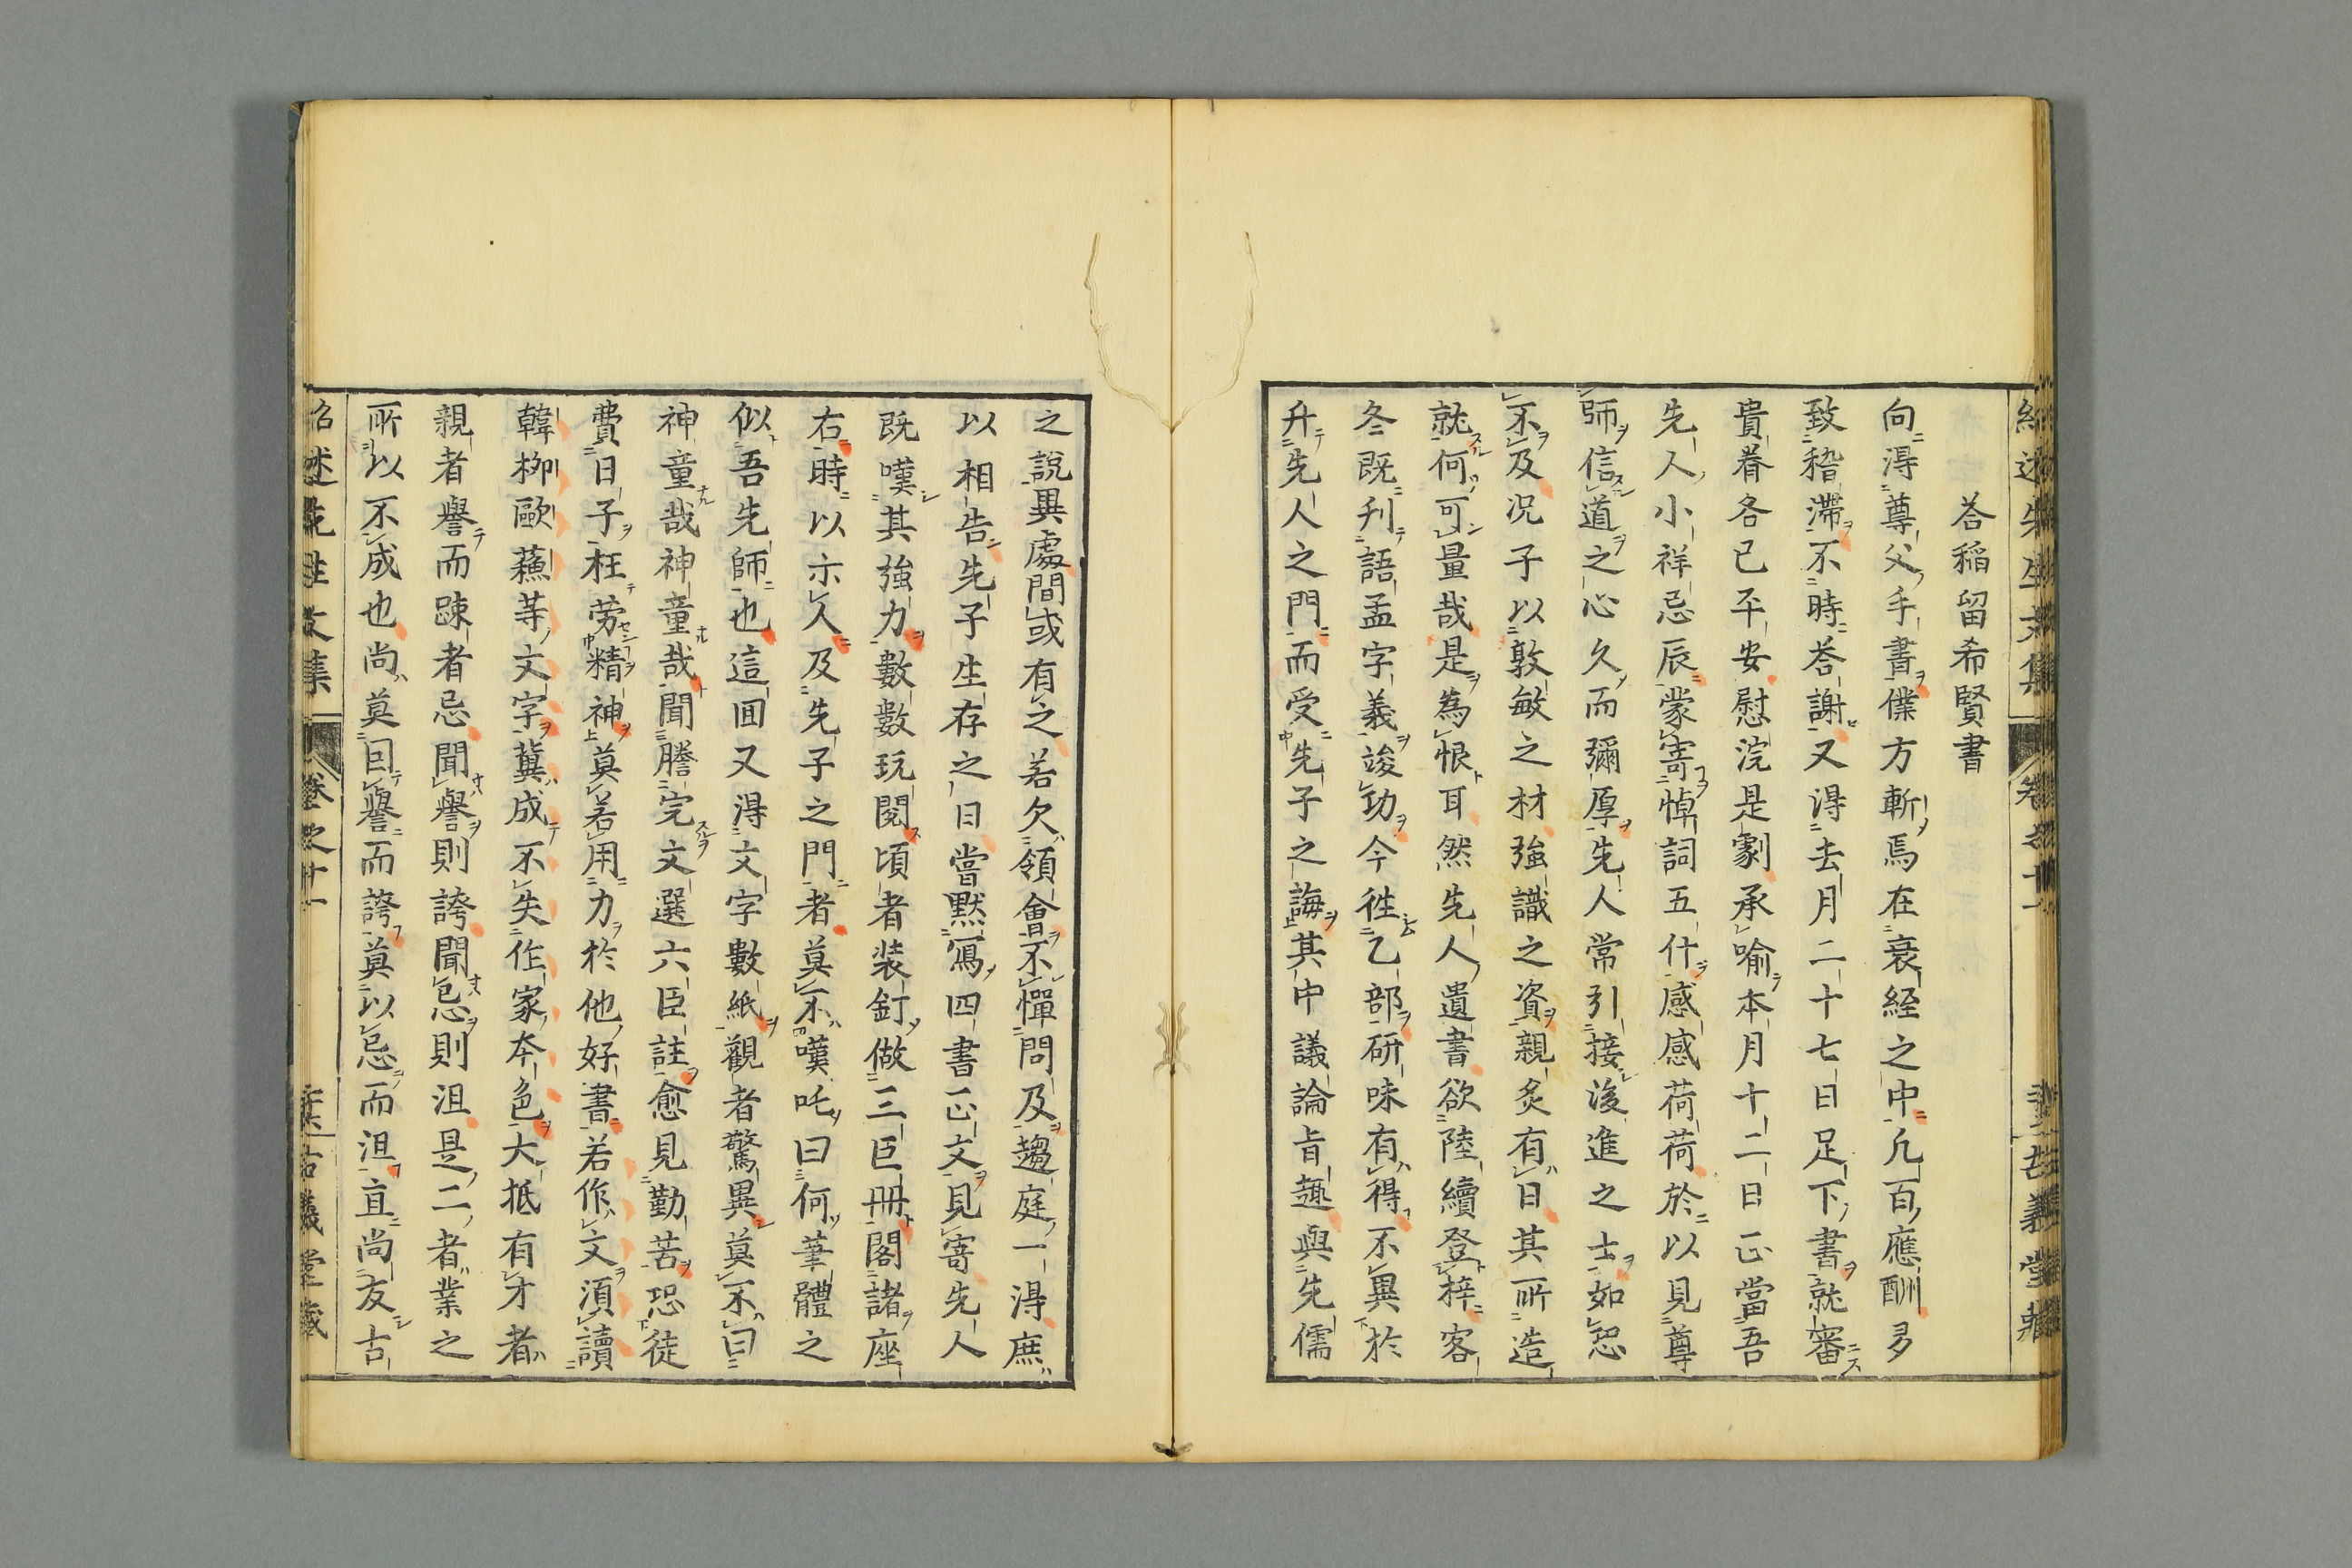 荅稲留希賢書
向淂尊父手書僕方斬焉在衰絰之中凢百應酬多
致稽滯不時荅謝又淂去月二十七日足下書就審
貴眷各已平安慰浣是劇承喻本月十二日正當吾
先人小祥忌辰蒙寄悼詞五什感感荷荷於以見尊
師信道之心久而彌厚先人常引接後進之士如恐
不及況子以敦敏之材強識之資親炙有日其所造
就何可量哉是為恨耳然先人遺書欲陸續登梓客
冬既刋語孟字義竣功今徃乙部研味有得不異於
升先人之門而受先子之誨其中議論旨趣與先儒
之說異處間或有之若欠領會不憚問及趨庭一淂庶
以相告先子生存之日嘗默寫四書正文見寄先人
既嘆其強力數數玩閱頃者装釘做三巨冊閣諸座
右時以示人及先子之門者莫不嘆吒曰何筆體之
似吾先師也這回又淂文字數紙觀者驚異莫不曰
神童哉神童哉聞謄完文選六臣註愈見勤苦恐徒
費日子枉劳精神莫若用力於他好書若作文湏讀
韓栁歐蘓等文字冀成不失作家本色大抵有才者
親者譽而踈者忌聞譽則誇聞忌則沮是二者業之
所以不成也尚莫因譽而誇莫以忌而沮直尚友古
紹述先生文集
卷之十一
古義堂藏